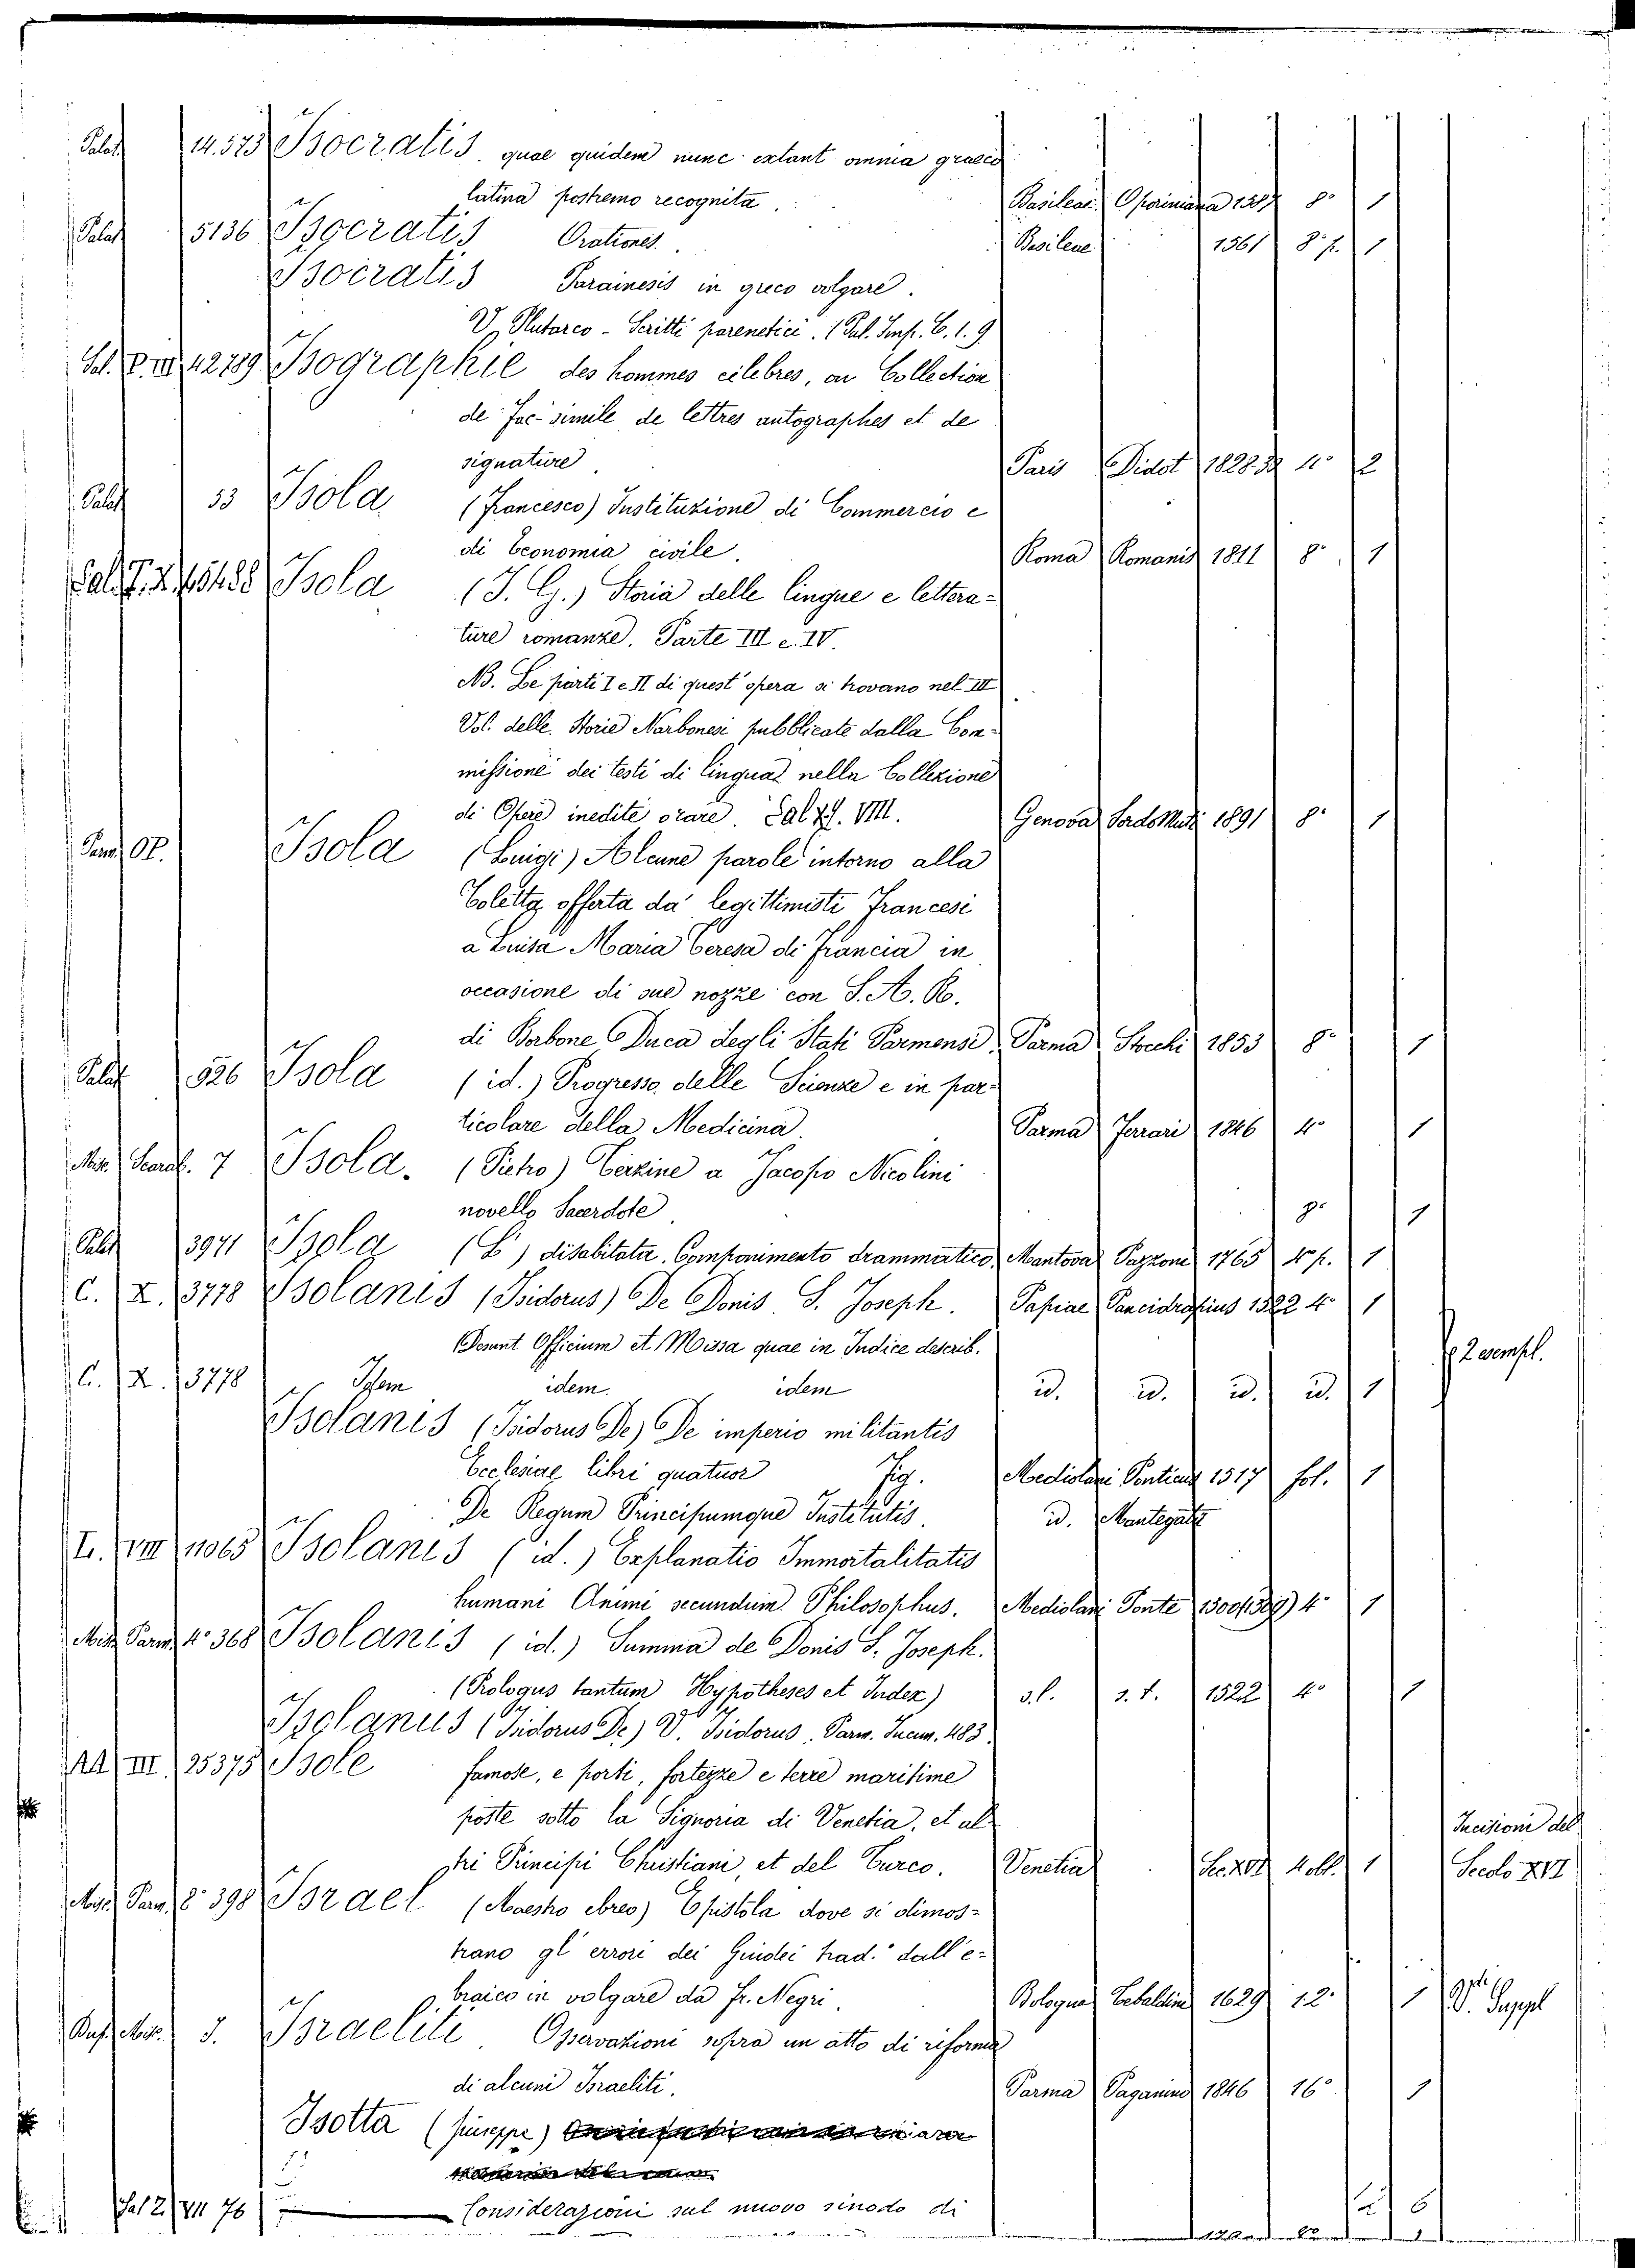 Palat 14.573 Isocratis quae quidem nunc extant omnia graeco
latina postremo recognita. Basileae Oporiniana 1587 8° 1
Palat 5136 Isocratis Orationes. Basileae 1561 8° p. 1
Isocratis Parainesis in greco volgare.
V. Plutarco - Scritti parenetici. (Pal. Imp. C. 1. 9
Sal. P. III 42789 Isographie des hommes célèbres, ou Collection
de Fac-simile de lettres autographes et de
signature Paris Didot 1828.30 4° 2
Palat 53 Isola (Francesco) Instituzione di Commercio e
di Economia civile. Roma Romanis 1811 8° 1
Isola (I. G.) Storia delle lingue e lettera-
ture romanze. Parte III e IV.
NB. Le parti I e II di quest'opera si trovano nel III
Vol. delle Storie Narbonesi pubblicate dalla Com-
missione dei testi di lingua nella Collezione
di Opere inedite o rare. VIII. Genova Sordo Muti 1891 8° 1
Parm. OP. Isola (Luigi) Alcune parole intorno alla
Toletta offerta da' legittimisti Francesi
a Luisa Maria Teresa di Francia in
occasione di sue nozze con S. A. R.
di Borbone Duca degli Stati Parmensi. Parma Stocchi 1853 8° 1
Palat 526 Isola (id.) Progresso delle Scienze e in par-
ticolare della Medicina. Parma Ferrari 1846 4° 1
Misc. Scarab. 7 Isola. (Pietro) Terzine a Jacopo Nicolini
novello Sacerdote 8° 1
Palat 3971 Isola (L') disabitata. Componimento drammatico. Mantova Pazzoni 1765 4° p. 1
C. X. 3778 Isolanis (Isidorus) De Donis S. Joseph. Papiae 1522 4° 1
Desunt Officium et Missa quae in Indice describ.
2 esempl.
C. X. 3778 Item idem idem id. id. id. id. 1
Isolanis (Isidorus De) De imperio militantis
Ecclesiae libri quatuor Fig. Mediolani Ponticus 1517 fol. 1
De Regum Principumque Institutis. id. Mantegatii
L. VIII 11065 Isolanis (id.) Explanatio Immortalitatis
humani Animi secundum Philosophus. Mediolani Ponte 1500(1509) 4° 1
Misc. Parm. 4° 368 Isolanis (id.) Summa de Donis S. Joseph.
(Prologus tantum Hypotheses et Index) s.l. s.t. 1522 4° 1
Isolanus (Isidorus De) V. Isidorus. Parm. Incun. 483.
AA III. 25375 Isole famose, e porti, fortezze e terre maritime
poste sotto la Signoria di Venetia, et al-
tri Principi Christiani, et del Turco. Venetia Sec. XVI 4° obl. 1
Incisioni del
Secolo XVI
Misc. Parm. 8° 398 Israel (Maestro ebreo) Epistola dove si dimos-
trano gl'errori dei Giudei trad. dall'e-
braico in volgare da Fr. Negri. Bologna Tebaldini 1629 12° 1 V. Suppl
Misc. Israeliti. Osservazioni sopra un atto di riforma
di alcuni Israeliti. Parma Paganino 1846 16° 1
Isotta (Giuseppe)
Sal 2. VII 76 Considerazioni sul nuovo sinodo di